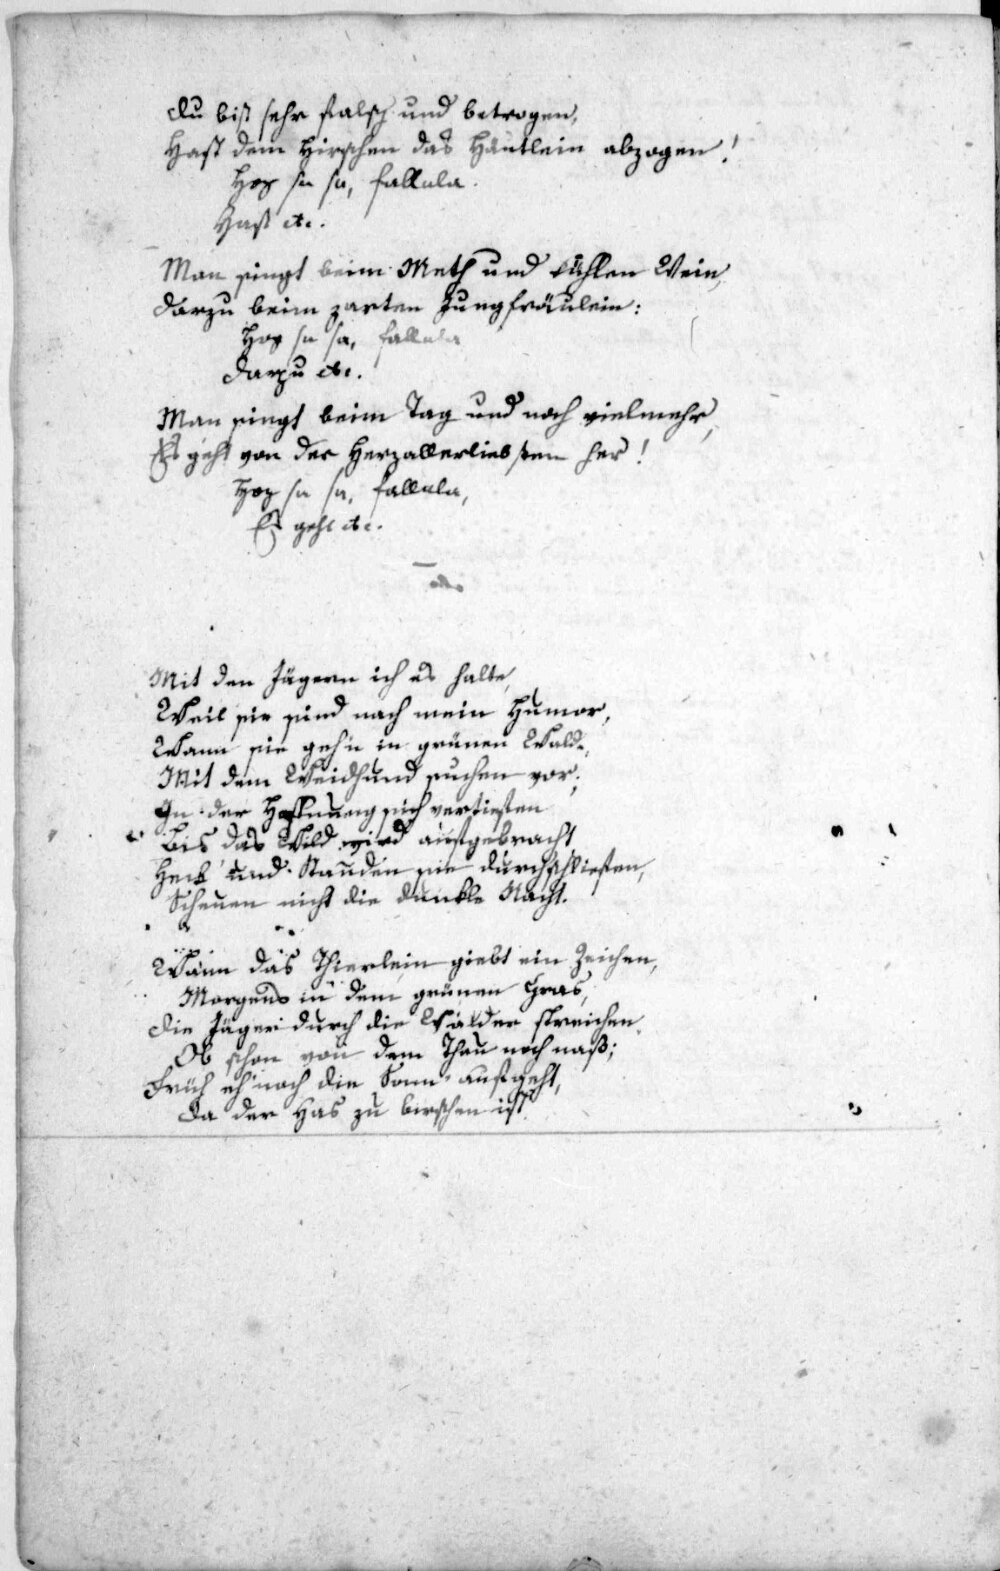 Du bist sehr falsch und betrogen,
Hast dem Hirschen das Häutlein abzogen!
Hop sa sa, fallala.
Hast etc.
Man singt beim Meth und kühlen Wein,
Darzu beim zarten Jungfräulein:
Hop sa sa, fallala
Darzu etc.
Man singt beim Tag und noch vielmehr,
Es geht von der Herzallerliebsten her!
Hop sa sa, fallala,
Es geht etc.
Mit den Jägern ich es halte,
Weil sie sind nach mein Humor,
Wann sie geh'n in grünen Wald,
Mit dem Weidhund suchen vor;
In der Hoffnung sich vertieften
Bis das Wild wird aufgebracht
Heck' und Stauden sie durchschlieften,
Scheuen nicht die dunkle Nacht.
Wann das Thierlein giebt ein Zeichen,
Morgens in dem grünen Gras,
Die Jäger durch die Wälder streichen,
Ob schon von dem Thau noch naß;
Früh eh' noch die Sonn' aufgeht,
Da der Has zu birschen ist